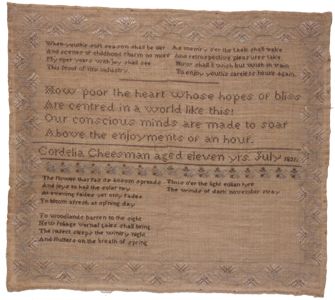 When youths soft season shall be oer
And scenes of childhood charm no more
My riper years with joy shall see
This proof of my industry.
As memry oer the task shall wake
And retrospective pleasures take
How shall I wish but wish in vain
To enjoy youths careless hours again.
How poor the heart whose hopes of bliss
Are centred in a world like this!
Our conscious minds are made to soar
Above the enjoyments of an hour.
Cordelia Cheesman aged eleven yrs. July
The flower that fair its bosom spreads
And joys to hail the solar ray
At evening fades yet only fades
To bloom afresh at opning day
Thus oer the light eolian lyre
The winds of dark november stray
To woodlands barren to the sight
New foliage vernal gales shall bring
The insect sleeps the wintry night
And flutters on the breath of spring